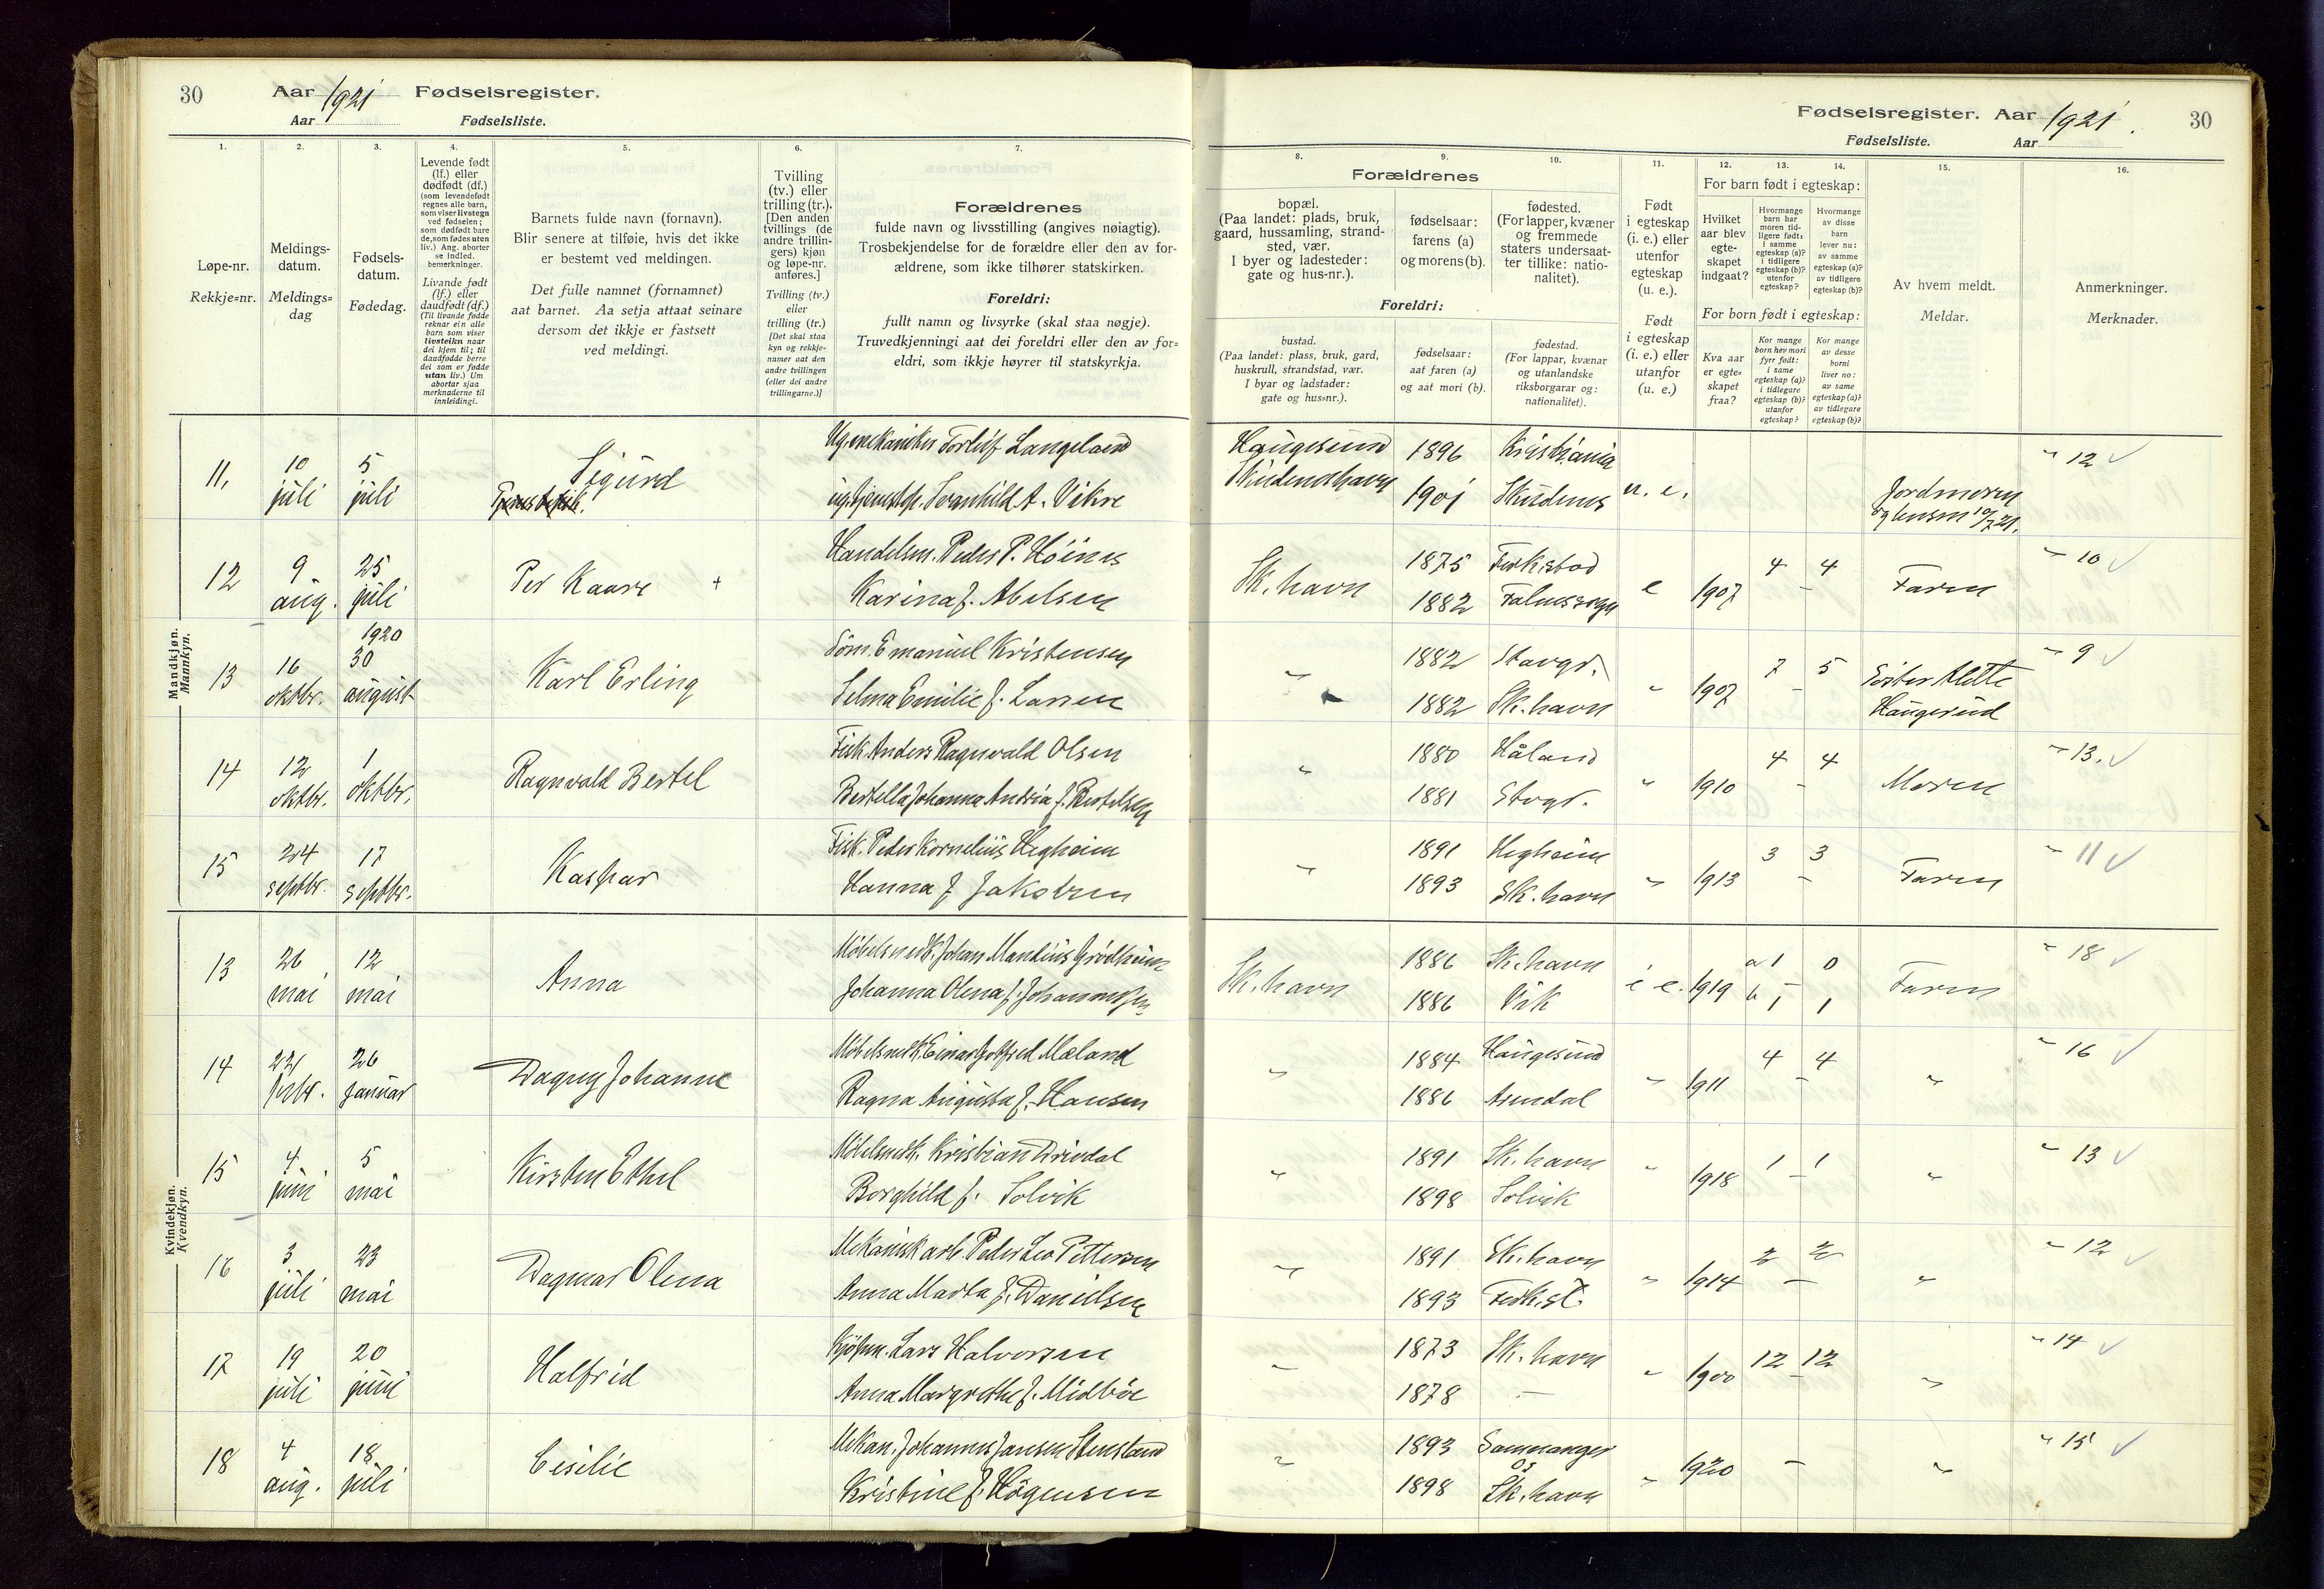 30
Aar 1921 Fødselsregister.
Aar Fødselsliste.
1.
2.
3.
4.
5.
6.
7.
Løpe-nr.
Rekkje=nr.
Meldings-
datum.
Meldings=
dag
Fødsels-
datum.
Fødedag.
Levende født
(lf.) eller
dødfødt (df.)
(som levendefødt
regnes alle barn,
som viser livstegn
ved fødselen;
som dødfødt bare
de, som fødes uten
liv.) Ang. aborter
se indled.
bemerkninger.
Livande født
(lf.) eller
daudfødt (df.)
(Til livande fødde
reknar ein alle
barn som viser
livsteikn naar
dei kjem til; til
daudfødde berre
dei som er fødde
utan liv.) Um
abortar sjaa
merknaderne til
innleidingi.
Barnets fulde navn (fornavn).
Blir senere at tilføie, hvis det ikke
er bestemt ved meldingen.
Det fulle namnet (fornamnet)
aat barnet. Aa setja attaat seinare
dersom det ikkje er fastsett
ved meldingi.
Tvilling
(tv.) eller
trilling (tr.).
[Den anden
tvillings (de
andre trillin-
gers) kjøn
og løpe-nr.
anføres.]
Tvilling (tv.)
eller
trilling (tr.)
[Det skal staa
kyn og rekkje-
numer aat den
andre tvillingen
(eller dei andre
trillingarne.)]
Forældrenes
fulde navn og livsstilling (angives nøiagtig).
Trosbekjendelse for de forældre eller den av for-
ældrene, som ikke tilhører statskirken.
Foreldri:
fullt namn og livsyrke (skal staa nøgje).
Truvedkjenningi aat dei foreldri eller den av for=
eldri, som ikkje høyrer til statskyrkja.
Mandkjøn.
Mannkyn.
11,
10 juli
5 juli
Sigurd
Ug. mekaniker Torleif Langeland
ug. tjenestep. Svanhild A. Vikre
12
9 aug.
25 juli
Per Kaare +
Handelsm. Peder P. Höines
Karina f. Abelsen
13
16 oktbr.
1920
30 august
Karl Erling
Söm. Emanuel Kristensen
Selma Emilie f. Larsen
14
12 oktbr.
1 oktbr.
Ragnvald Bertel
Fisk. Anders Ragnvald Olsen
Bertella Johanna Andrea f. Bertelsen
15
24 septbr.
17 septbr.
Kaspar
Fisk. Peder Kornelius Hegheim
Hanna f. Jakobsen
Kvindekjøn.
Kvendkyn.
13
26 mai
12 mai
Anna
Möbelsnedk. Johan Mandius Grödheim
Johanna Olena f. Johannessen
14
22 febr.
26 januar
Dagny Johanne
Möbelsnedk. Einar Gotfred Mæland
Ragna Augusta f. Hansen
15
4 juni
5 mai
Kirsten Ethel
Möbelsnedk. Kristian Drivdal
Borghild f. Solvik
16
3 juli
23 mai
Dagmar Olena
Mekanisk arb. Peder Leo Pettersen
Anna Marta f. Danielsen
17
19 juli
20 juni
Halfrid
Kjöpm. Lars Halvorsen
Anna Margrethe f. Midböe
18
4 aug.
18 juli
Cesilie
Mekan. Johannes Jansen Stensland
Kristine f. Högensen
Fødselsregister. Aar 1921.
Fødselsliste. Aar
30
8.
9.
10.
11.
12.
13.
14.
15.
16.
Forældrenes
bopæl.
(Paa landet: plads, bruk,
gaard, hussamling, strand-
sted, vær.
I byer og ladesteder:
gate og hus-nr.).
fødselsaar:
farens (a)
og morens (b).
fødested.
(For lapper, kvæner
og fremmede
staters undersaat-
ter tillike: natio-
nalitet).
Foreldri:
bustad.
(Paa landet: plass, bruk, gard,
huskrull, strandstad, vær.
I byar og ladstader:
gate og hus=nr.).
fødselsaar:
aat faren (a)
og aat mori (b).
fødestad.
(For lappar, kvænar
og utanlandske
riksborgarar og:
nationalitet).
Født
i egteskap
(i. e.) eller
utenfor
egteskap
(u. e.).
Født
i egteskap
(i. e.) eller
utanfor
egteskap
(u. e.)
For barn født i egteskap:
Hvilket
aar blev
egte-
skapet
indgaat?
Hvormange
barn har
moren tid-
ligere født:
i samme
egteskap (a)?
i tidligere
egteskap (b)?
utenfor
egteskap?
Hvormange
av disse
barn
lever nu:
av samme
egteskap (a)?
av tidligere
egteskap (b)?
For born født i egteskap:
Kva aar
er egte=
skapet
fraa?
Kor mange
born hev mori
fyrr født:
i same
egteskap (a)?
i tidlegare
egteskap (b)?
utanfor
egteskap?
Kor mange
av desse
borni
liver no:
av same
egteskap (a)?
av tidlegare
egteskap (b)?
Av hvem meldt.
Meldar.
Anmerkninger.
Merknader.
Haugesund 1896 Kristiania
Skudeneshavn 1901 Skudenes u. e.
Jordmoren
12
Sk. havn 1875 Ferkstad
1882 Falnessogn e 1907 4 4 Faren
10
" 1882 Stavgr.
1882 Sk. havn " 1907 7 5
Söster Alette
Haugesund
9
" 1880 Håland
1881 Stvgr. " 1910 4 4 Moren
13.
" 1891 Hegheim
1893 Sk. havn " 1913 3 3 Faren
11
Sk. havn 1886 Sk. havn
1886 Vik i e. 1919 a 1 0
b 1 1 Faren
18
" 1884 Haugesund
1886 Arendal " 1911 4 4 "
16
" 1891 Sk. havn
1898 Solvik " 1918 1 1 "
13
" 1891 Sk. havn
1893 Ferkst. " 1914 2 2 "
12
" 1873 Sk. havn
1878 — " 1900 12 12 "
14
" 1893 Samnanger
Os
1898 Sk. havn " 1920 — "
15